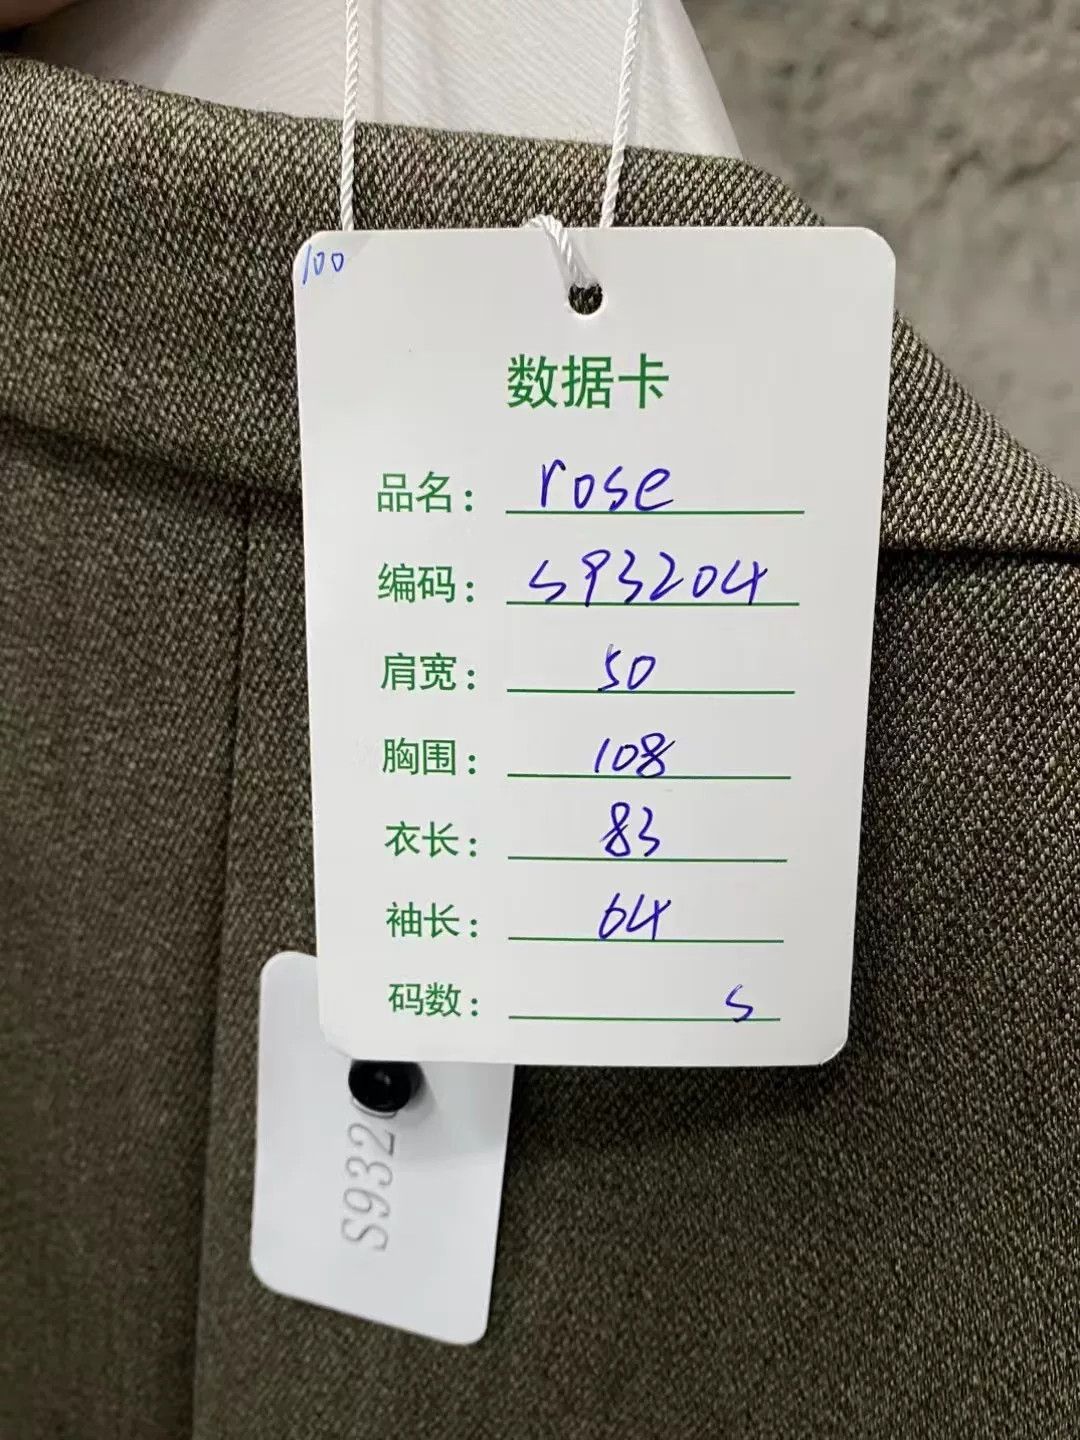 100
数据卡
品名: rose
编码: S93204
肩宽: 50
胸围: 108
衣长: 83
袖长: 64
码数: S
S932